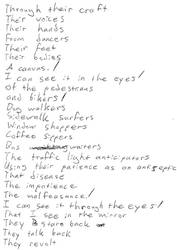 Through their craft
Their voices
Their hands
From dancers
Their feet
Their bodies
A canvas!
I can see it in the eyes!
Of the pedestrians
and bikers!
Dog walkers
Sidewalk surfers
Window shoppers
Coffee sippers
Bus waiters
The traffic light anticipators
Using their patience as an antiseptic
That disease
The impatience
The malfeasance!
I can see it through the eyes!
That I see in the mirror
They stare back
They talk back
They revolt